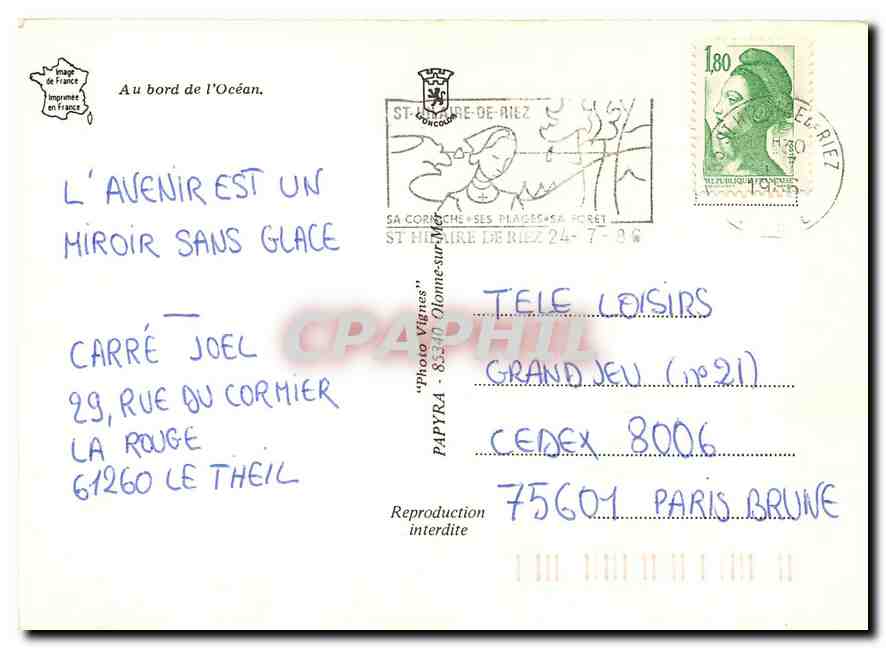 Image
de France
Imprimée
en France
Au bord de l'Océan.
LYONCOLOR
1,80
REPUBLIQUE FRANÇAISE
ST-HILAIRE-DE-RIEZ
SA CORNICHE • SES PLAGES • SA FORET
ST HILAIRE DE RIEZ 24-7-86
L'AVENIR EST UN
MIROIR SANS GLACE
—
CARRÉ JOEL
29, RUE DU CORMIER
LA ROUGE
61260 LE THEIL
"Photo Vignes"
PAPYRA - 85340 Olonne-sur-Mer
CPAPHIL
TELE LOISIRS
GRAND JEU (n°21)
CEDEX 8006
75601 PARIS BRUNE
Reproduction
interdite